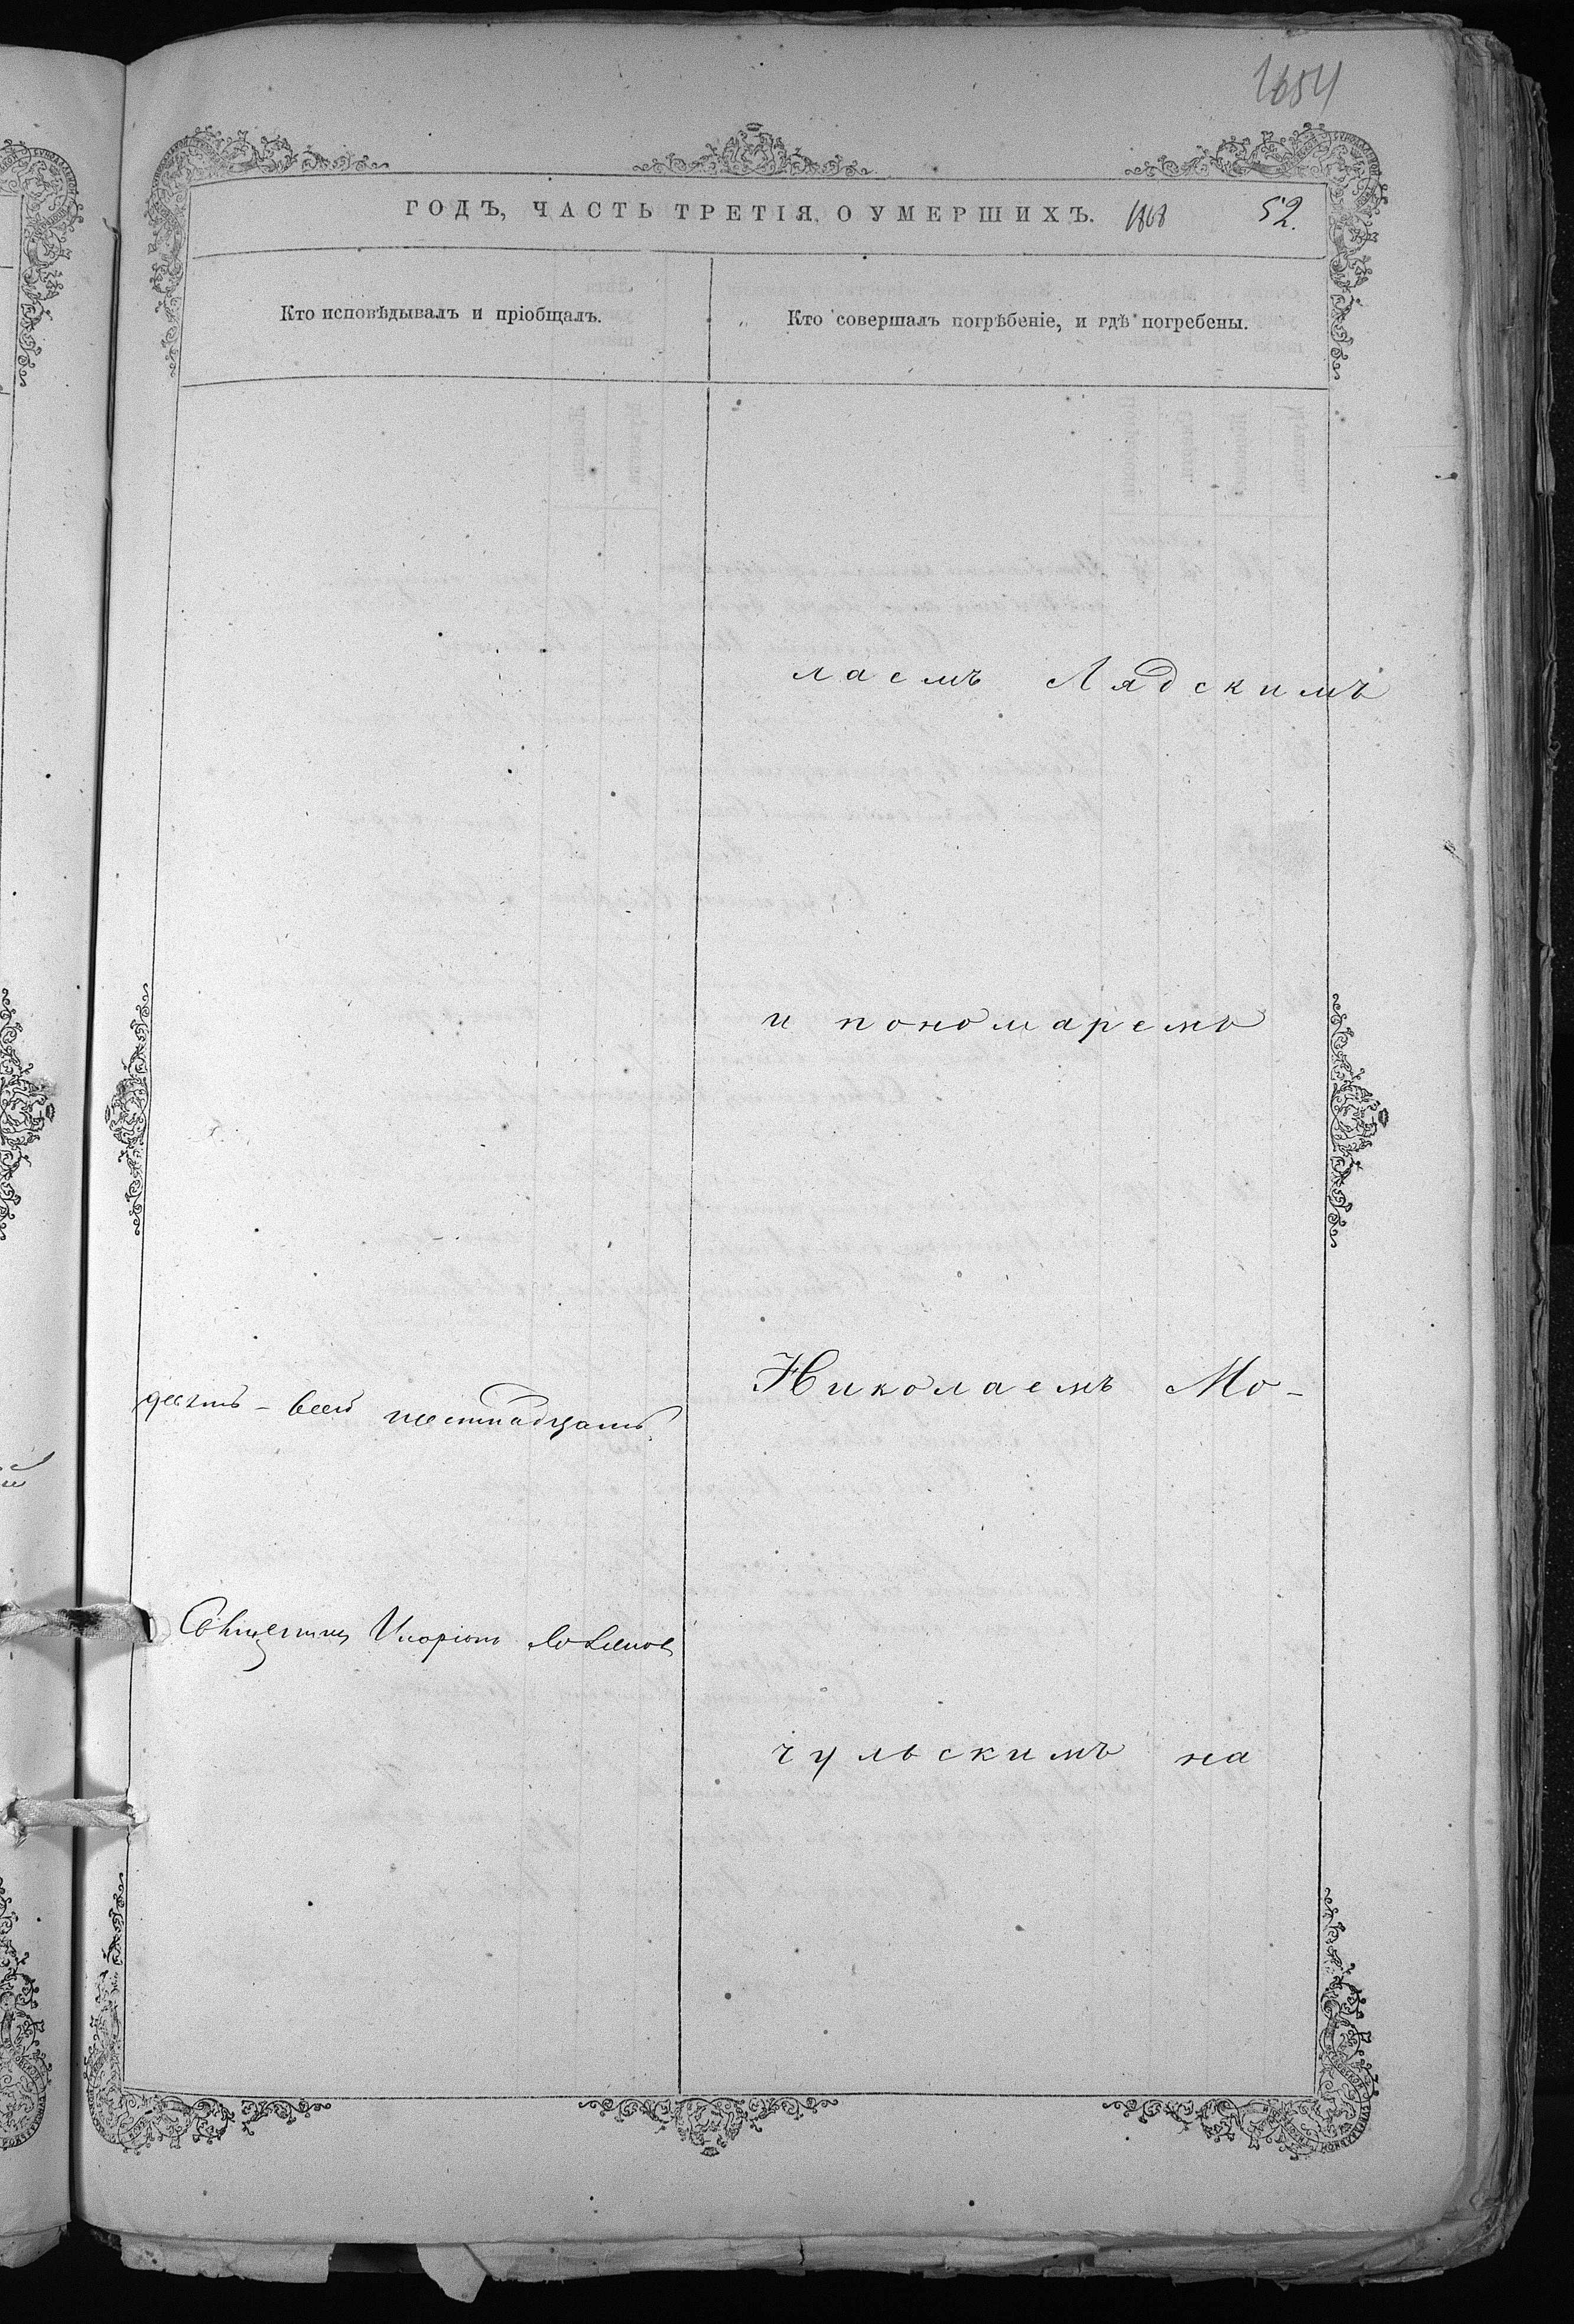 1654
ГОДЪ, ЧАСТЬ ТРЕТІЯ, О УМЕРШИХЪ. 1868 52.
Кто исповѣдывалъ и пріобщалъ.
Кто совершалъ погрѣбеніе, и гдѣ погребены.
лаемъ Лядскимъ
и пономаремъ
Николаемъ Мо-
чульскимъ на
десять - всего шестнадцать
Священник Иларіонъ